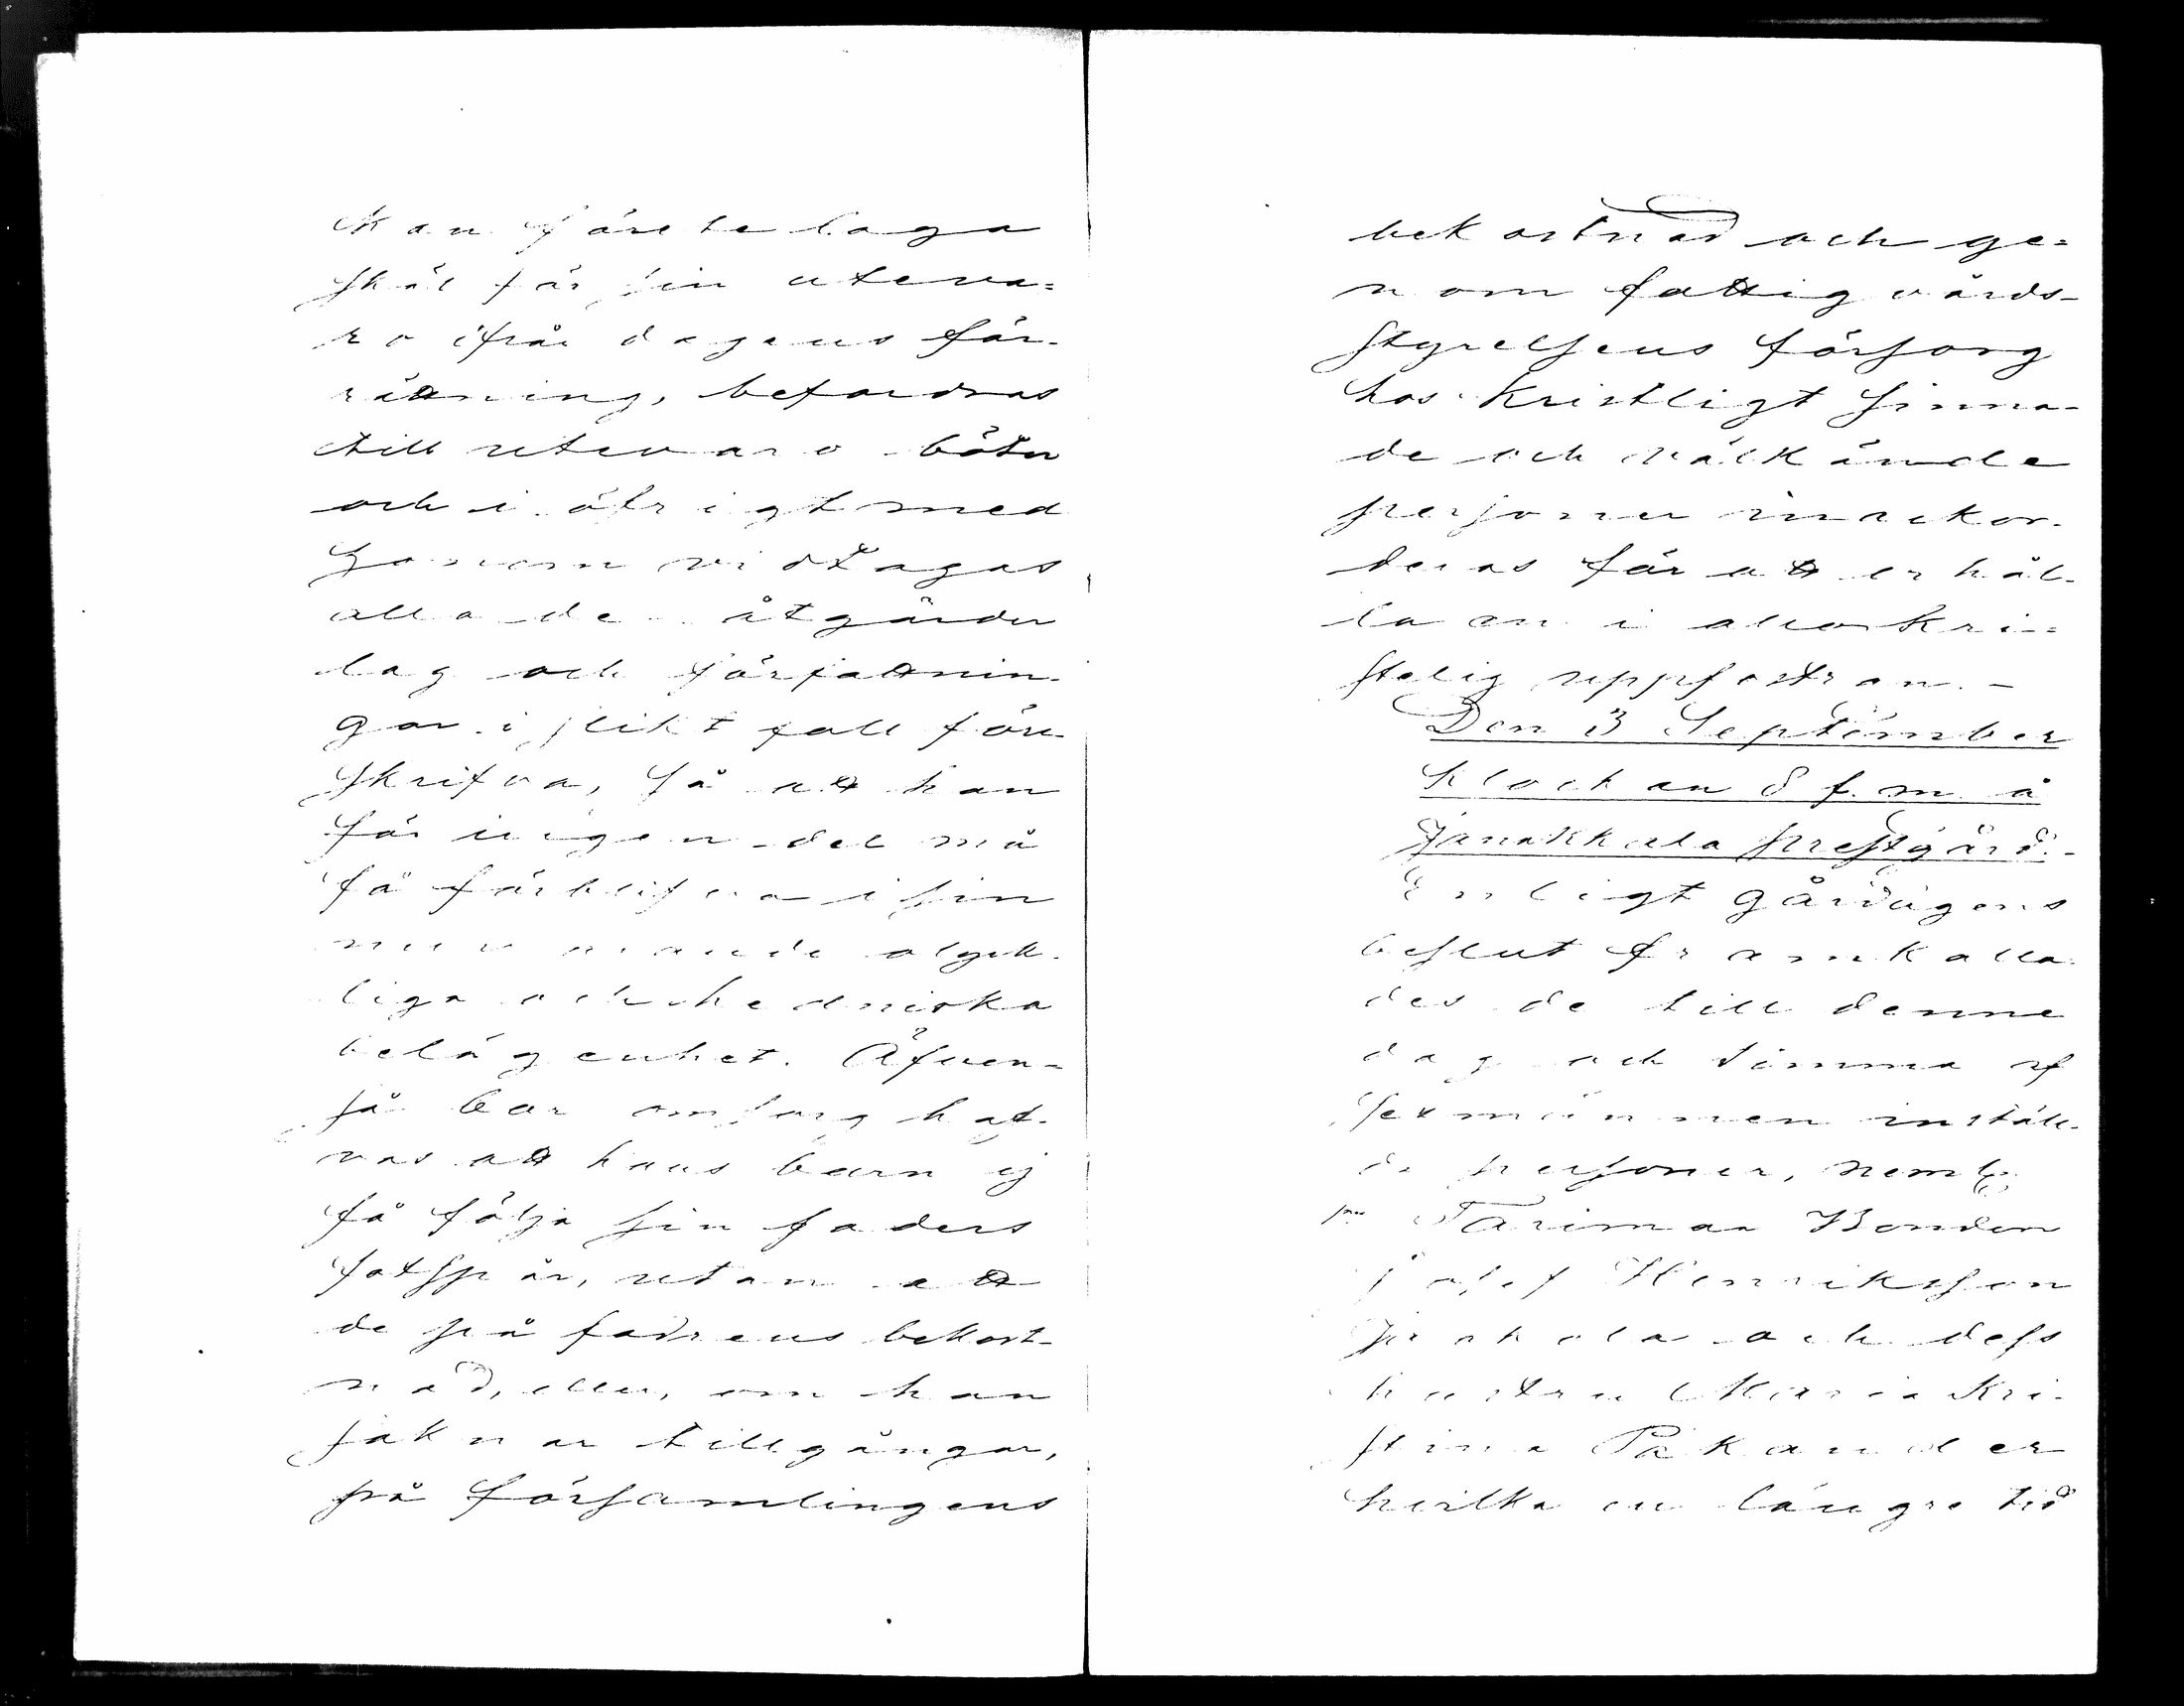 kan förete laga
skäl för sin uteva=
ro ifrån dagens för-
rättning, befordras
till utevaro böter
och i öfrigt med
honom vidtagas
alla de åtgärder
lag och författnin-
gar i slikt fall före-
skrifva, så att han
för ingen del må
få förblifva i sin
nuvarande olyck-
liga och hedniska
belägenhet. Äfven=
så bör omsorg haf-
vas att hans barn ej
få följa sin faders
fotspår, utan att
de på fadrens bekost-
nad, eller, om han
saknar tillgångar,
på församlingens
bekostnad och ge=
nom fattigvårds-
styrelsens försorg
hos kristligt sinna-
de och välkände
personer inackor-
deras för att erhål-
la en i allo kri=
stelig uppfostran. -
Den 3 September
klockan 8 f.m. å
Janakkala prestgård. -
Enligt gårdagens
beslut framkalla-
des de till denne
dag och timma af
sexmännen inställ-
da personer, neml:
Bonden
Josef Henriksson
och dess
hustru Maria Kri-
stina
hvilka en längre tid